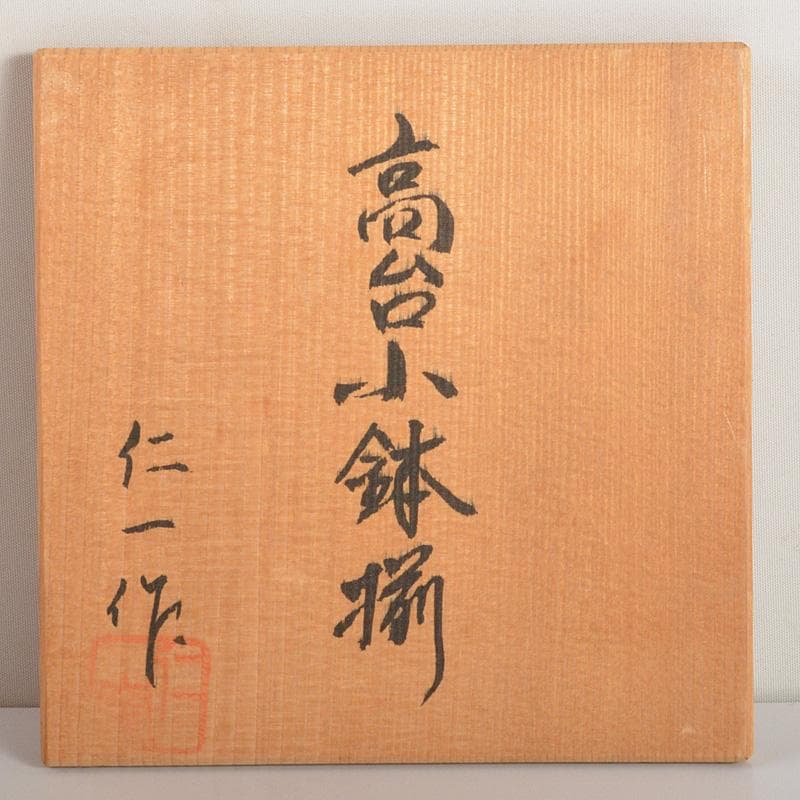 高台小鉢揃
仁一作